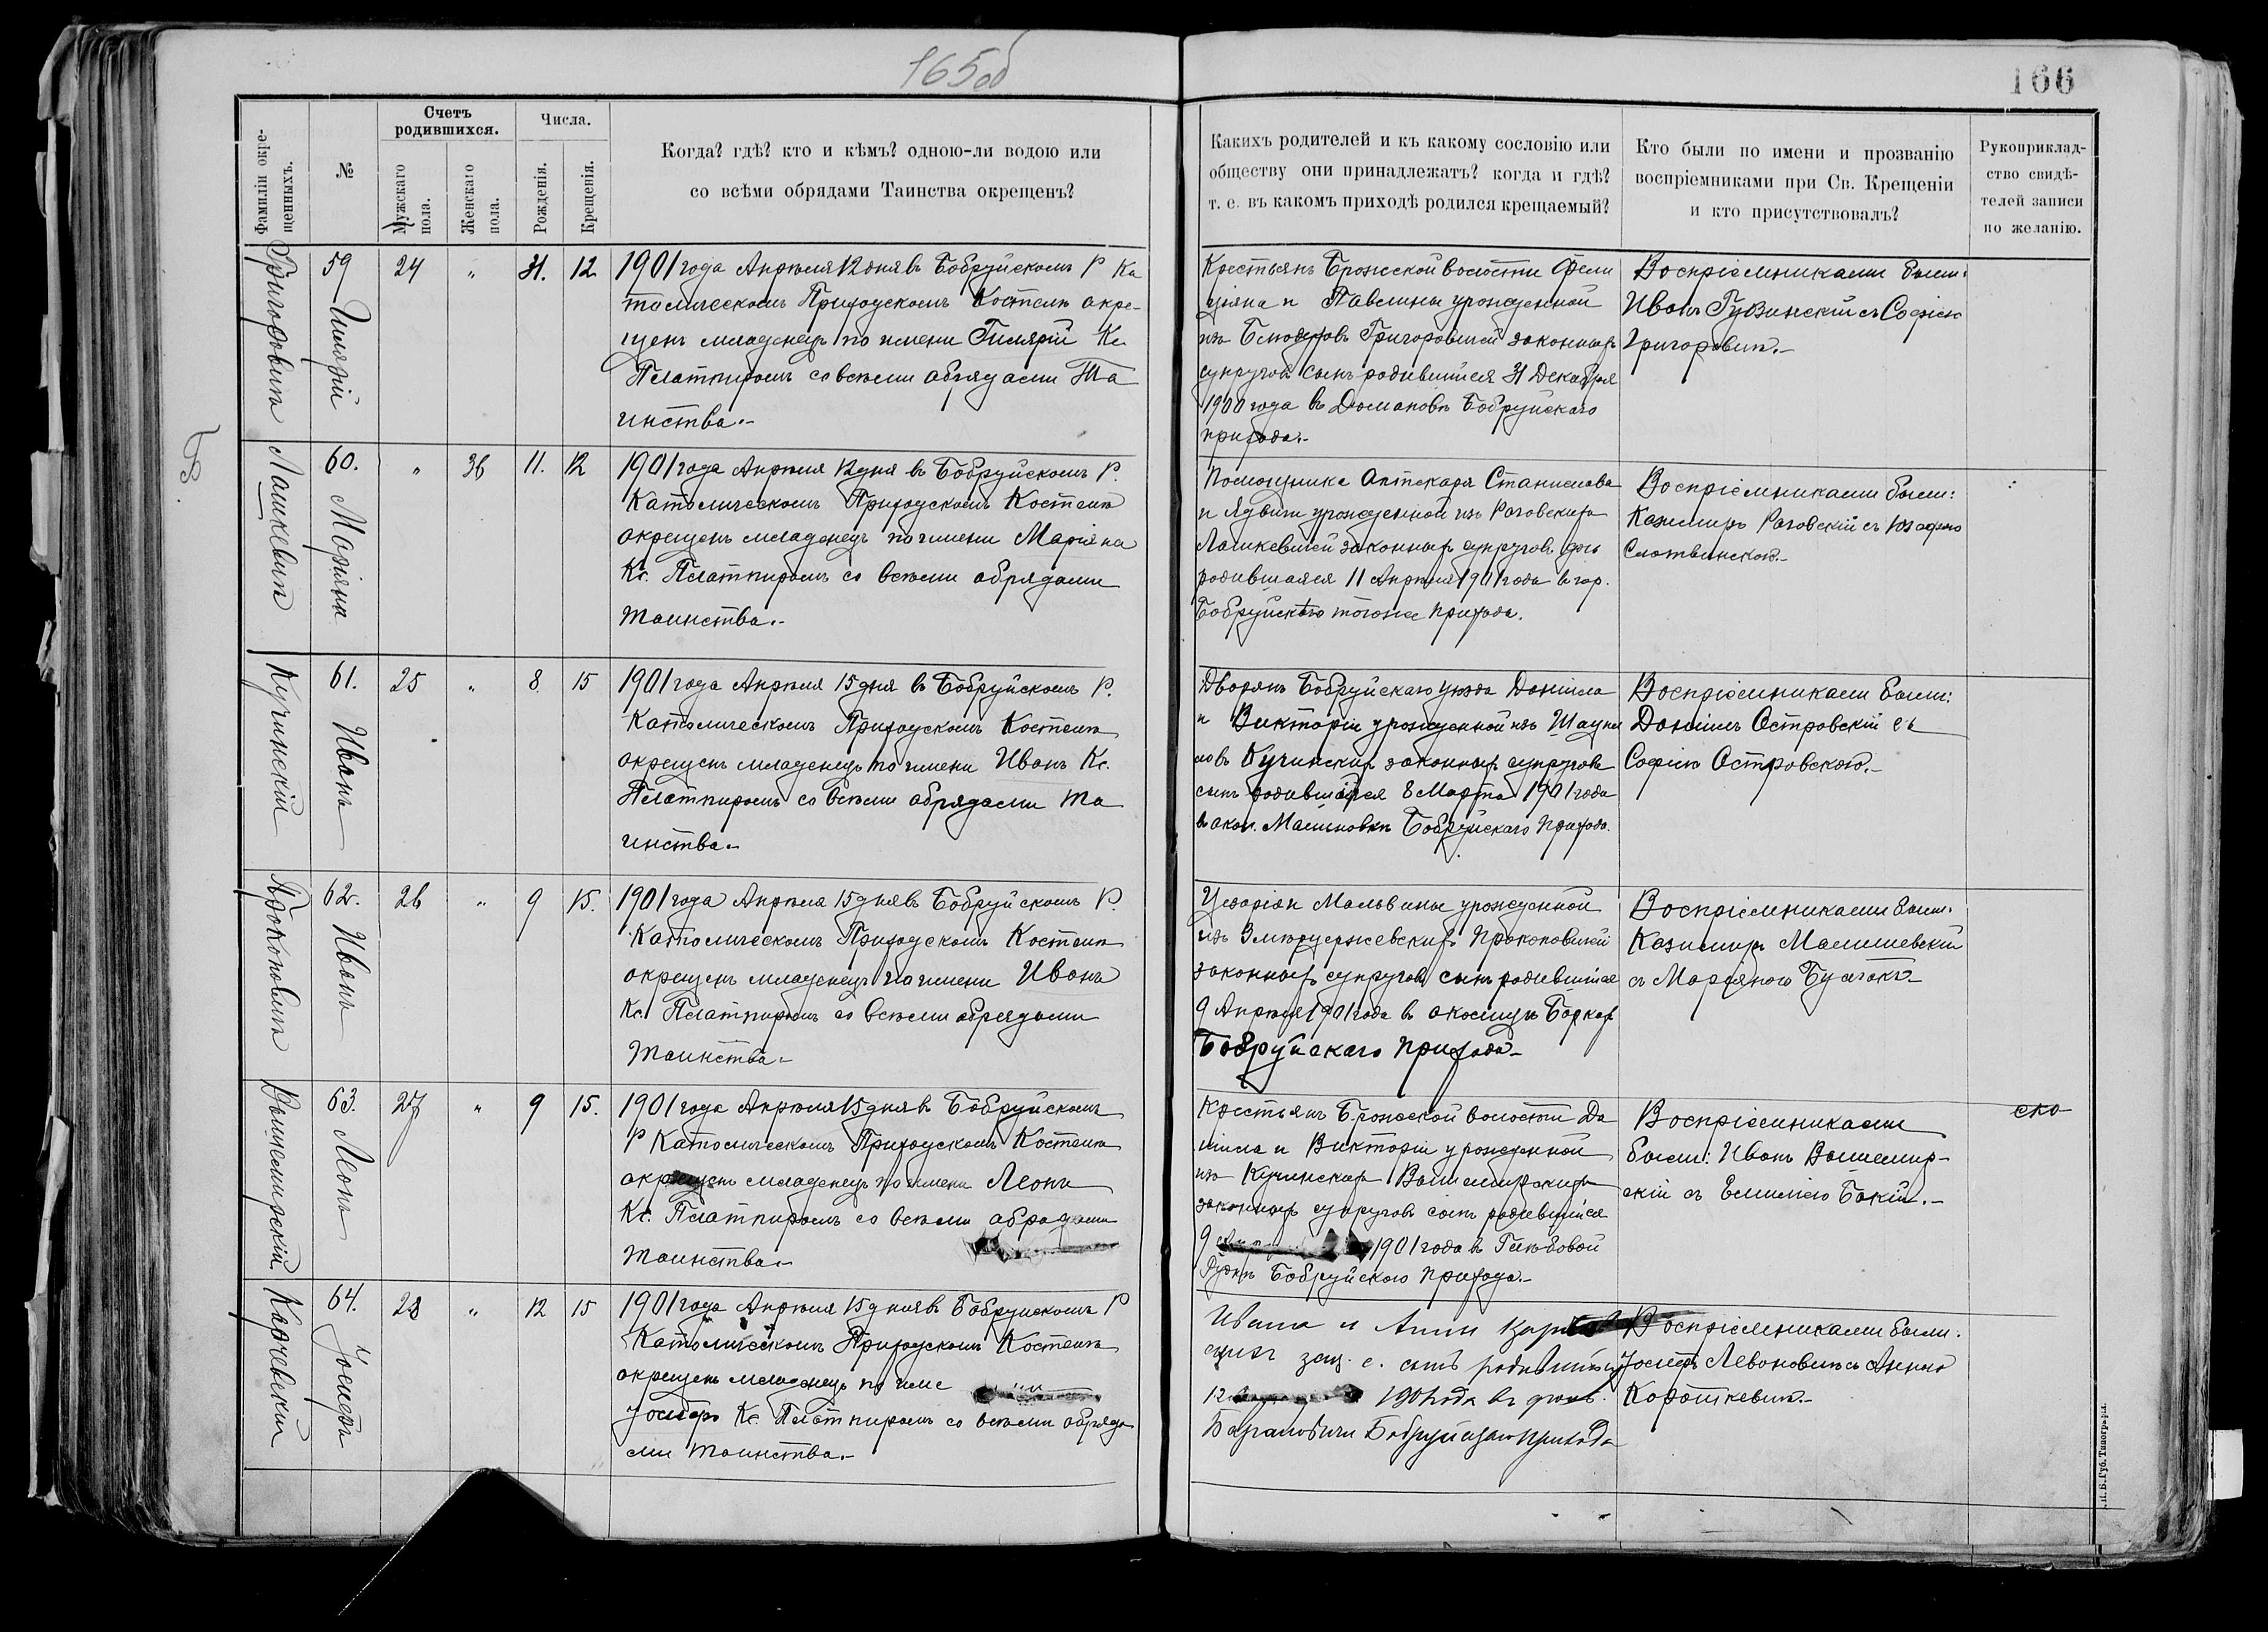 165об
166
Фамиліи окре-
щенныхъ.
№
Счетъ
родившихся.
Мужскаго
пола.
Женскаго
пола.
Числа.
Рожденія.
Крещенія.
Когда? гдѣ? кто и кѣмъ? одною-ли водою или
со всѣми обрядами Таинства окрещенъ?
Каких​ъ родителей и къ какому сословію или
обществу они принадлежатъ? когда и гдѣ?
т. е. въ какомъ приходѣ родился крещаемый?
Кто были по имени и прозванію
воспріемниками при Св. Крещеніи
и кто присутствовалъ?
Рукоприклад-
ство свидѣ-
телей записи
по желанію.
Григоровичъ
59
24
„
31.
12
1901 года Апрѣля 12 дня въ Бобруйскомъ Р Ка
толическомъ Приходскомъ Костелѣ окре-
щенъ младенецъ по имени Гилярій Кс.
Платпиромъ со всѣми обрядами Та
инства.-
Крестьянъ Брожской волости Фели
ціяна и Павлины урожденной
изъ Григоровичей законныхъ
супруговъ сынъ родившійся 31 Декабря
1900 года въ Домановѣ Бобруйскаго
прихода.-
Воспріемниками были:
Иванъ Гузинскій съ Софіею
Григоровичъ.-
Б
Лашкевичъ
60.
Маріяна
„
36
11.
12
1901 года Апрѣля 12 дня въ Бобруйскомъ Р.
Католическомъ Приходскомъ Костелѣ
окрещенъ младенецъ по имени Маріяна
Кс. Платпиромъ со всѣми обрядами
таинства.-
Помощника Аптекаря Станислава
и Ядвиги урожденной изъ Раговскихъ
Лашкевичей законныхъ супруговъ дочь
родившаяся 11 Апрѣля 1901 года въ гор.
Бобруйскѣ тогоже прихода.
Воспріемниками были:
Казимиръ Раговскій съ Юзефою
Слотвинскою.-
Кучинскій
61.
Иванъ
25
„
8
15
1901 года Апрѣля 15 дня въ Бобруйскомъ Р.
Католическомъ Приходскомъ Костелѣ
окрещенъ младенецъ по имени Иванъ Кс.
Платпиромъ со всѣми обрядами та
инства.-
Дворянъ Бобруйскаго уѣзда Даніила
и Викторіи урожденной изъ
Кучинскихъ законныхъ супруговъ
сынъ родившійся 8 Марта 1901 года
въ окол. Бобруйскаго прихода.
Воспріемниками были:
Даніилъ Островскій съ
Софіею Островскою.-
Прокоповичъ
62.
Иванъ
26
„
9
15.
1901 года Апрѣля 15 дня въ Бобруйскомъ Р.
Католическомъ Приходскомъ Костелѣ
окрещенъ младенецъ по имени Иванъ
Кс. Платпиромъ со всѣми обрядами
таинства.-
Мальвины урожденной
изъ Прокоповичей
законныхъ супруговъ сынъ родившійся
9 Апрѣля 1901 года въ околицѣ
Бобруйскаго прихода-
Воспріемниками были:
Казимиръ Малишевскій
съ Маріяною
63.
Леонъ
27
„
9
15.
1901 года Апрѣля 15 дня въ Бобруйскомъ
Р Католическомъ Приходскомъ Костелѣ
окрещенъ младенецъ по имени Леонъ
Кс. Платпиромъ со всѣми обрядами
таинства.-
Крестьянъ Брожской волости Да
ніила и Викторіи урожденной
изъ Кучинскихъ
законныхъ супруговъ сынъ родившійся
9 1901 года въ Глѣбовой
Руднѣ Бобруйского прихода.-
Воспріемниками
были: Иванъ
скій съ Емиліею Бакій.-
ско
Карчевскій
64.
Іосифъ
28
„
12
15
1901 года Апрѣля 15 дня въ Бобруйскомъ Р
Католическомъ Приходскомъ Костелѣ
окрещенъ младенецъ по име
Іосифъ Кс. Платпиромъ со всѣми обряда
ми таинства.-
Ивана и Анны
зак. с. сынъ родившійся
12 1901 года въ
Барановичи Бобруйскаго прихода
Воспріемниками были:
Іосифъ Левоновичъ съ Анною
Короткевичъ.-